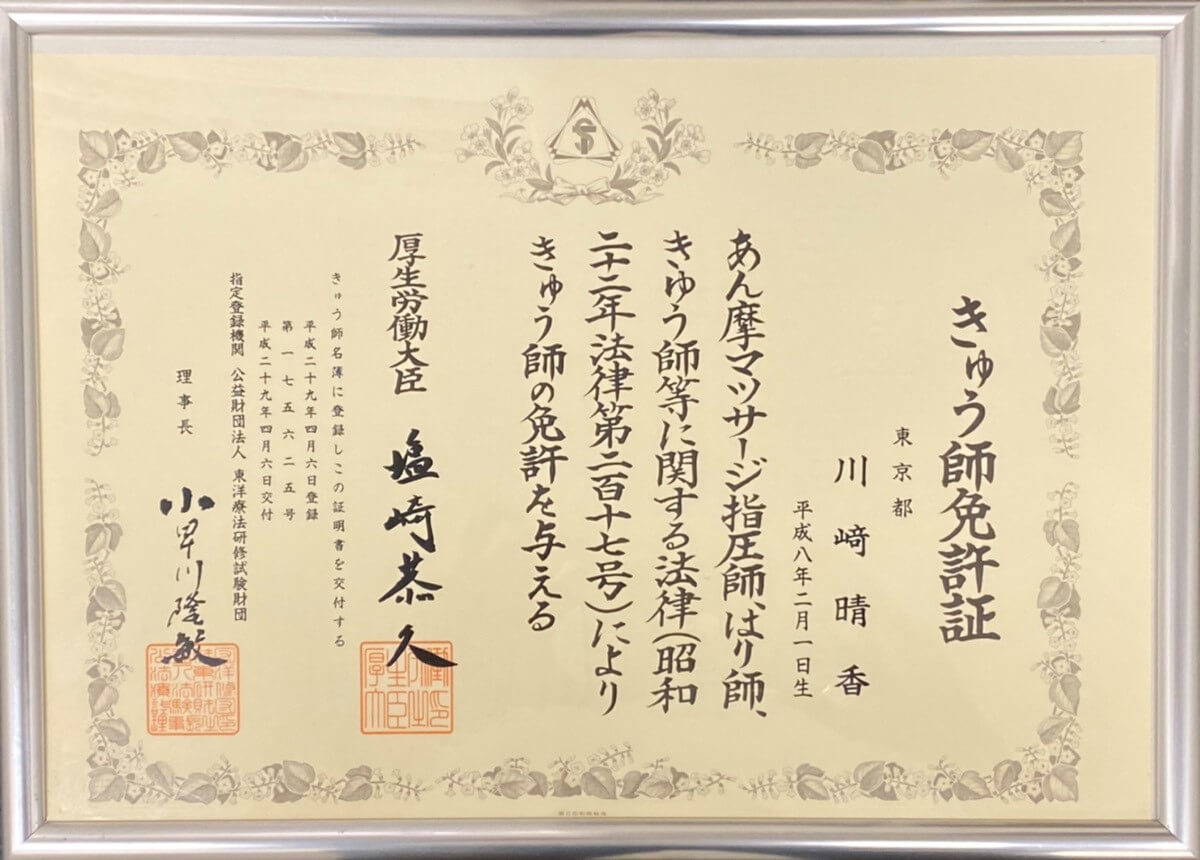 きゅう師免許証
東京都
川﨑晴香
平成八年二月一日生
あん摩マツサージ指圧師、はり師、
きゅう師等に関する法律（昭和
二十二年法律第二百十七号）により
きゅう師の免許を与える
厚生労働大臣 塩崎恭久
きゅう師名簿に登録しこの証明書を交付する
平成二十九年四月六日登録
第一七五六二五号
平成二十九年四月六日交付
指定登録機関 公益財団法人 東洋療法研修試験財団
理事長 小早川隆敏